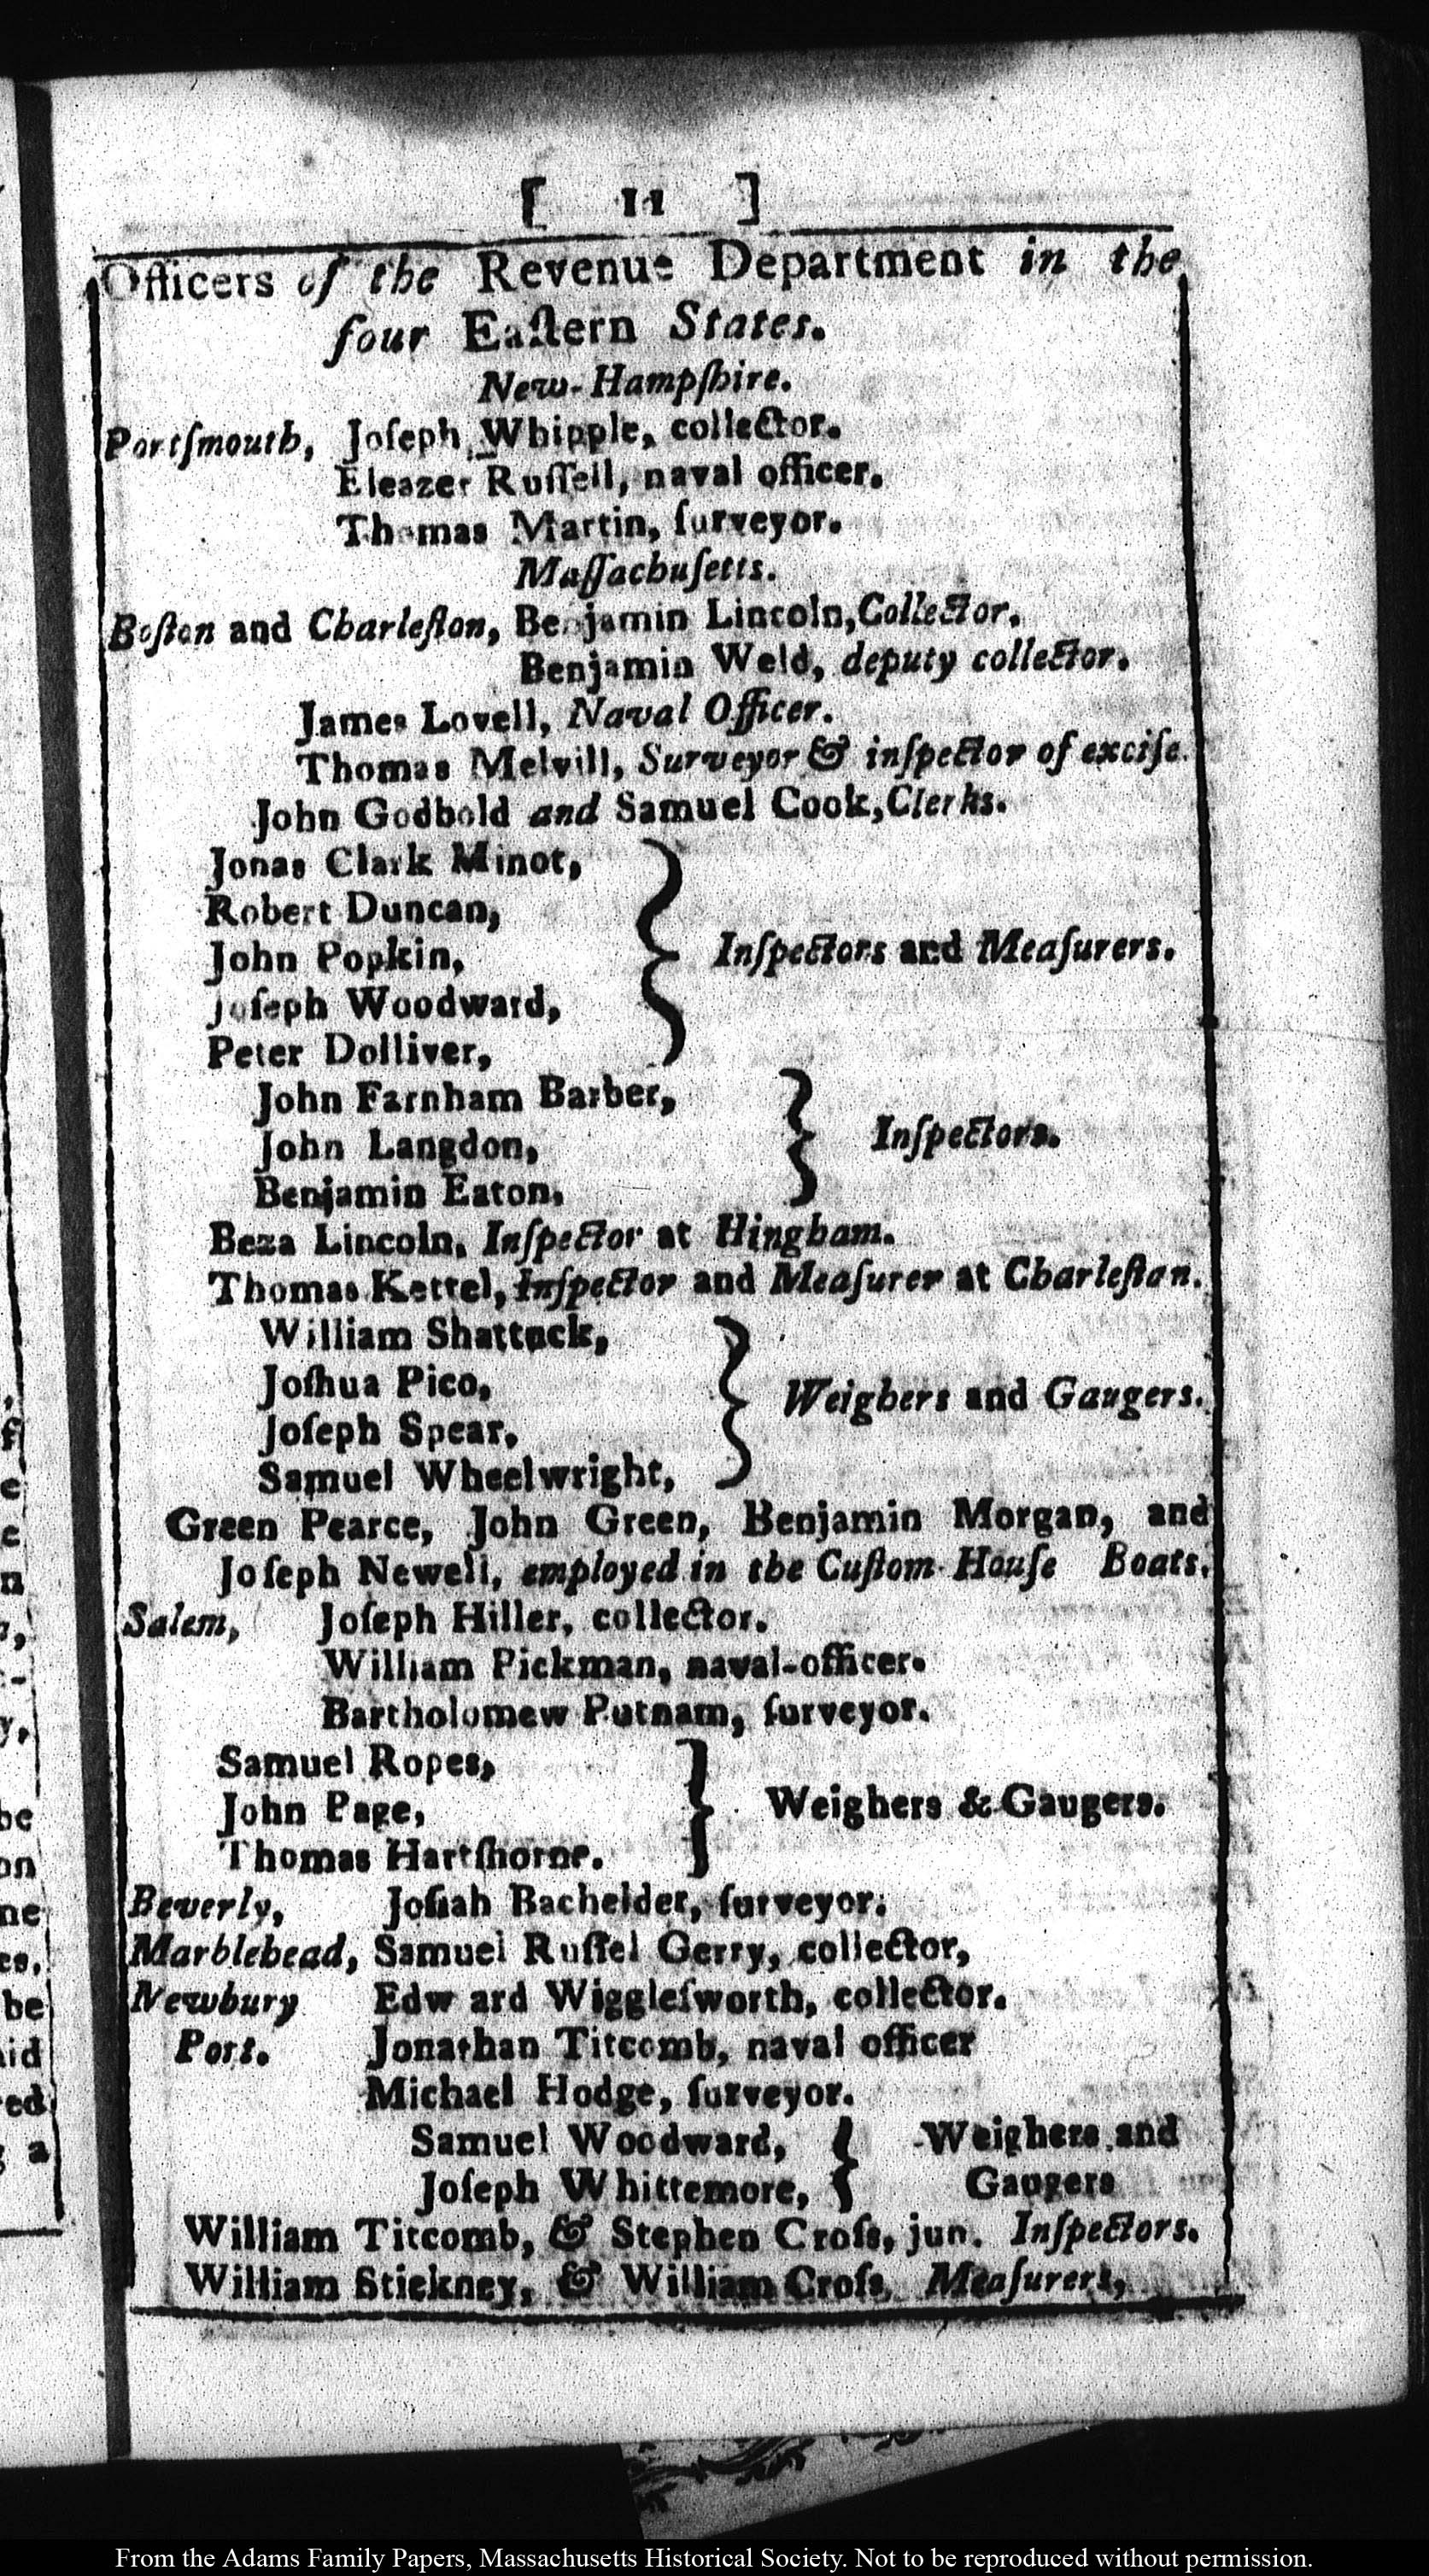 [ 11 ]
Officers of the Revenue Department in the
four Eaſtern States.
New-Hampſhire.
Portſmouth, Joſeph Whipple, collector.
Eleazer Ruſſell, naval officer.
Thomas Martin, ſurveyor.
Maſſachuſetts.
Boſton and Charleſton, Benjamin Lincoln, Collector.
Benjamin Weld, deputy collector.
James Lovell, Naval Officer.
Thomas Melvill, Surveyor & inſpector of exciſe.
John Godbold and Samuel Cook, Clerks.
Jonas Clark Minot,
Robert Duncan,
John Popkin, } Inſpectors and Meaſurers.
Joſeph Woodward,
Peter Dolliver,
John Farnham Barber,
John Langdon, } Inſpectors.
Benjamin Eaton,
Beza Lincoln, Inſpector at Hingham.
Thomas Kettel, Inſpector and Meaſurer at Charleſtan.
William Shattuck,
Joſhua Pico, } Weighers and Gaugers.
Joſeph Spear,
Samuel Wheelwright,
Green Pearce, John Green, Benjamin Morgan, and
Joſeph Newell, employed in the Cuſtom-Houſe Boats.
Salem, Joſeph Hiller, collector.
William Pickman, naval-officer.
Bartholomew Putnam, ſurveyor.
Samuel Ropes,
John Page, } Weighers & Gaugers.
Thomas Hartſhorne.
Beverly, Joſiah Bachelder, ſurveyor.
Marblehead, Samuel Ruſſel Gerry, collector,
Newbury Edw ard Wiggleſworth, collector.
Port. Jonathan Titcomb, naval officer
Michael Hodge, ſurveyor.
Samuel Woodward, { Weighers and
Joſeph Whittemore, Gaugers
William Titcomb, & Stephen Croſs, jun. Inſpectors.
William Stickney, & William Croſs Meaſurers,
From the Adams Family Papers, Massachusetts Historical Society. Not to be reproduced without permission.